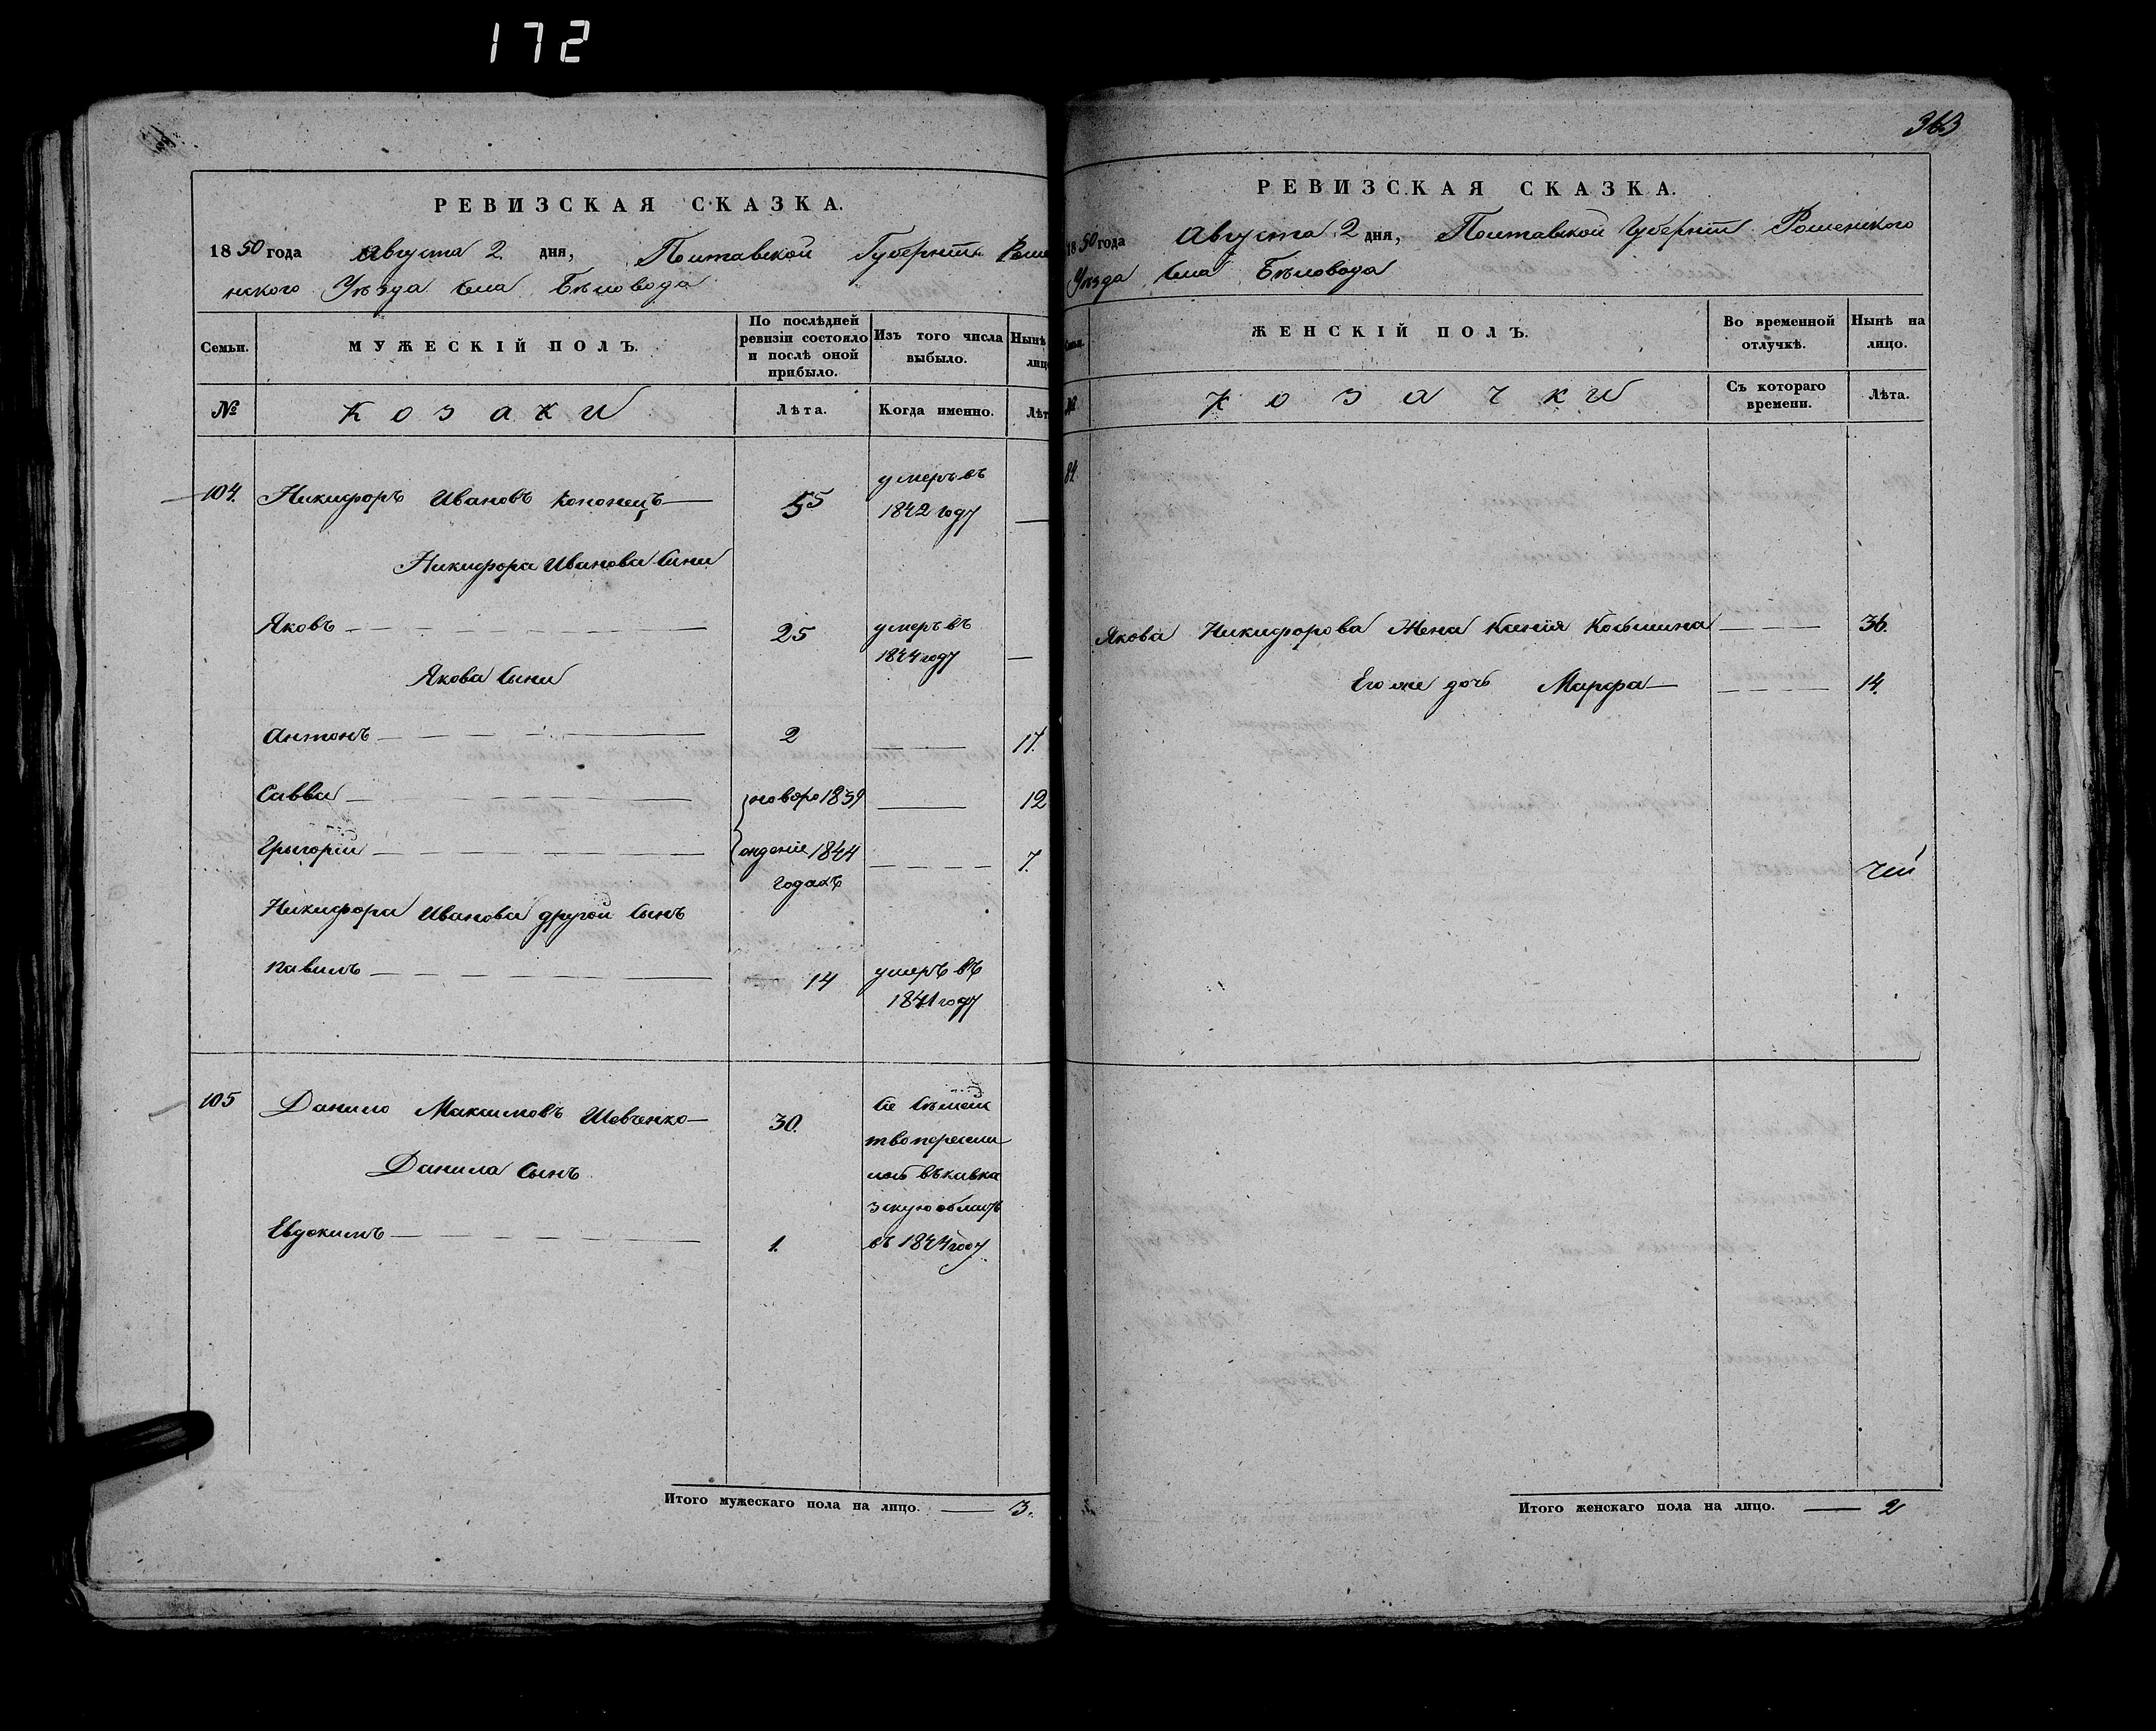 172
РЕВИЗСКАЯ СКАЗКА.
1850 года Августа 2 дня, Полтавской Губерніи Роме
нского Уѣзда Села Бѣловода
Семьи. МУЖЕСКІЙ ПОЛЪ. По послѣдней ревизіи состояло и послѣ оной прибыло. Изъ того числа выбыло. Нынѣ лиц
№ Козаки Лѣта. Когда именно. Лѣт
104. Никифоръ Ивановъ Кононецъ 55 умеръ въ
1842 году
Никифора Иванова Сыни
Яковъ 25 умеръ въ
1844 году
Якова Сыни
Антонъ 2 17.
Савва новоро 1839 12
Григорій ждение 1844 7.
годахъ
Никифора Иванова другой Сынъ
Павилъ 14 умеръ въ
1841 году
105 Данило Максимовъ Шевченко 30.
Данила Сынъ
Евдокимъ 1.
Се Сѣмей
тво пересили
лось въ кавка
зскую область
въ 1844 году
Итого мужескаго пола на лицо. 3.
363
РЕВИЗСКАЯ СКАЗКА.
1850 года Августа 2 дня, Полтавской Губерніи Роменского
Уѣзда Села Бѣловода
ЖЕНСКІЙ ПОЛЪ. Во временной отлучкѣ. Нынѣ на лицо.
№ Козачки Съ котораго времени. Лѣта.
84
Якова Никифорова Жена Ксенія Косьмина 36.
Его же дочь Марфа 14.
Итого женскаго пола на лицо. 2